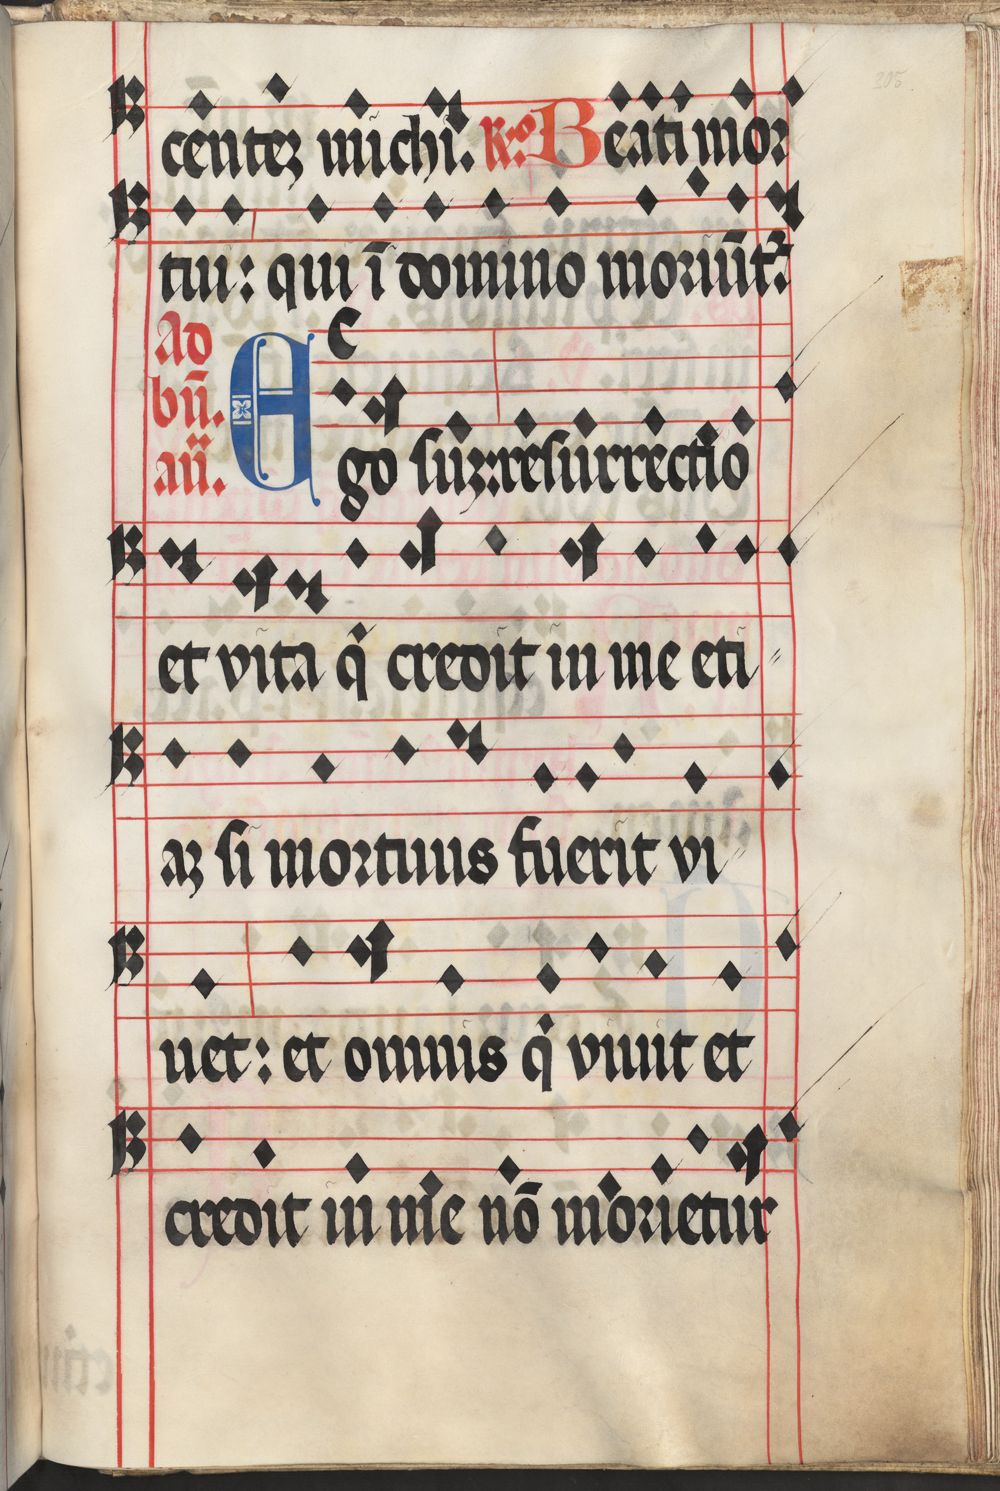 centeꝫ michi. R.o Beati mor
tui: qui ī domino moriūt.
Ad
bn̄.
an̄.
Ego suꝫ: resurrectio
et vita q̇ credit in me eti
aꝫ si mortuus fuerit vi
uet: et omnis q̇ viuit et
credit in me nō morietur